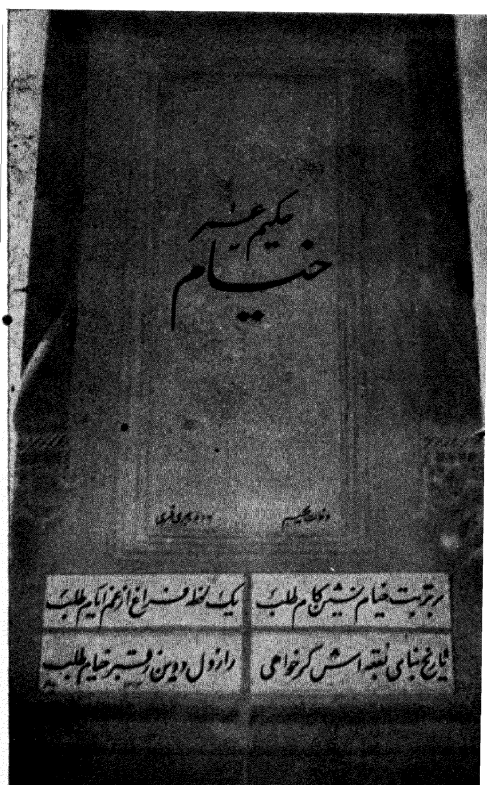 حکیم عمر
خیام
وفات حکیم
هجری قمری
بر تربت خیام نشین و کام طلب یک لحظه فراغ از غم ایام طلب
تاریخ بنای بقعه اش گر خواهی راز دل و دین ز قبر خیام طلب